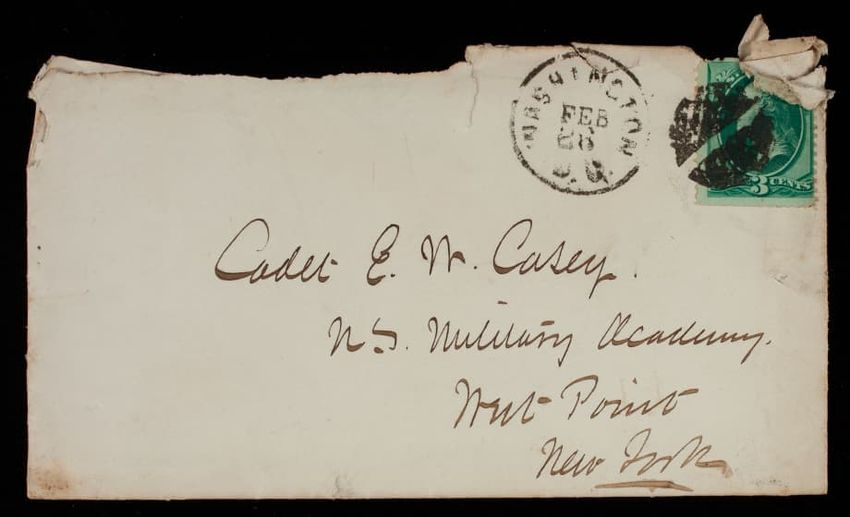 WASHINGTON
FEB
D.C.
3 CENTS
Cadet E. W. Casey.
U.S. Military Academy.
West Point
New York